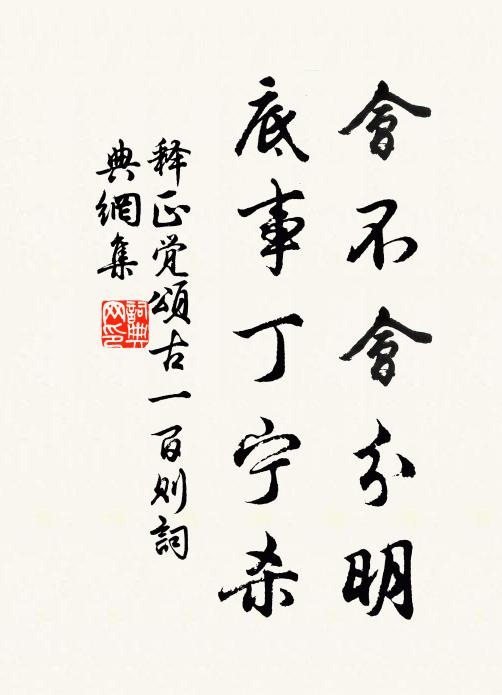 會不會分明
底事丁宁杀
释正觉頌古一百则詞
典網集
詞典
网印